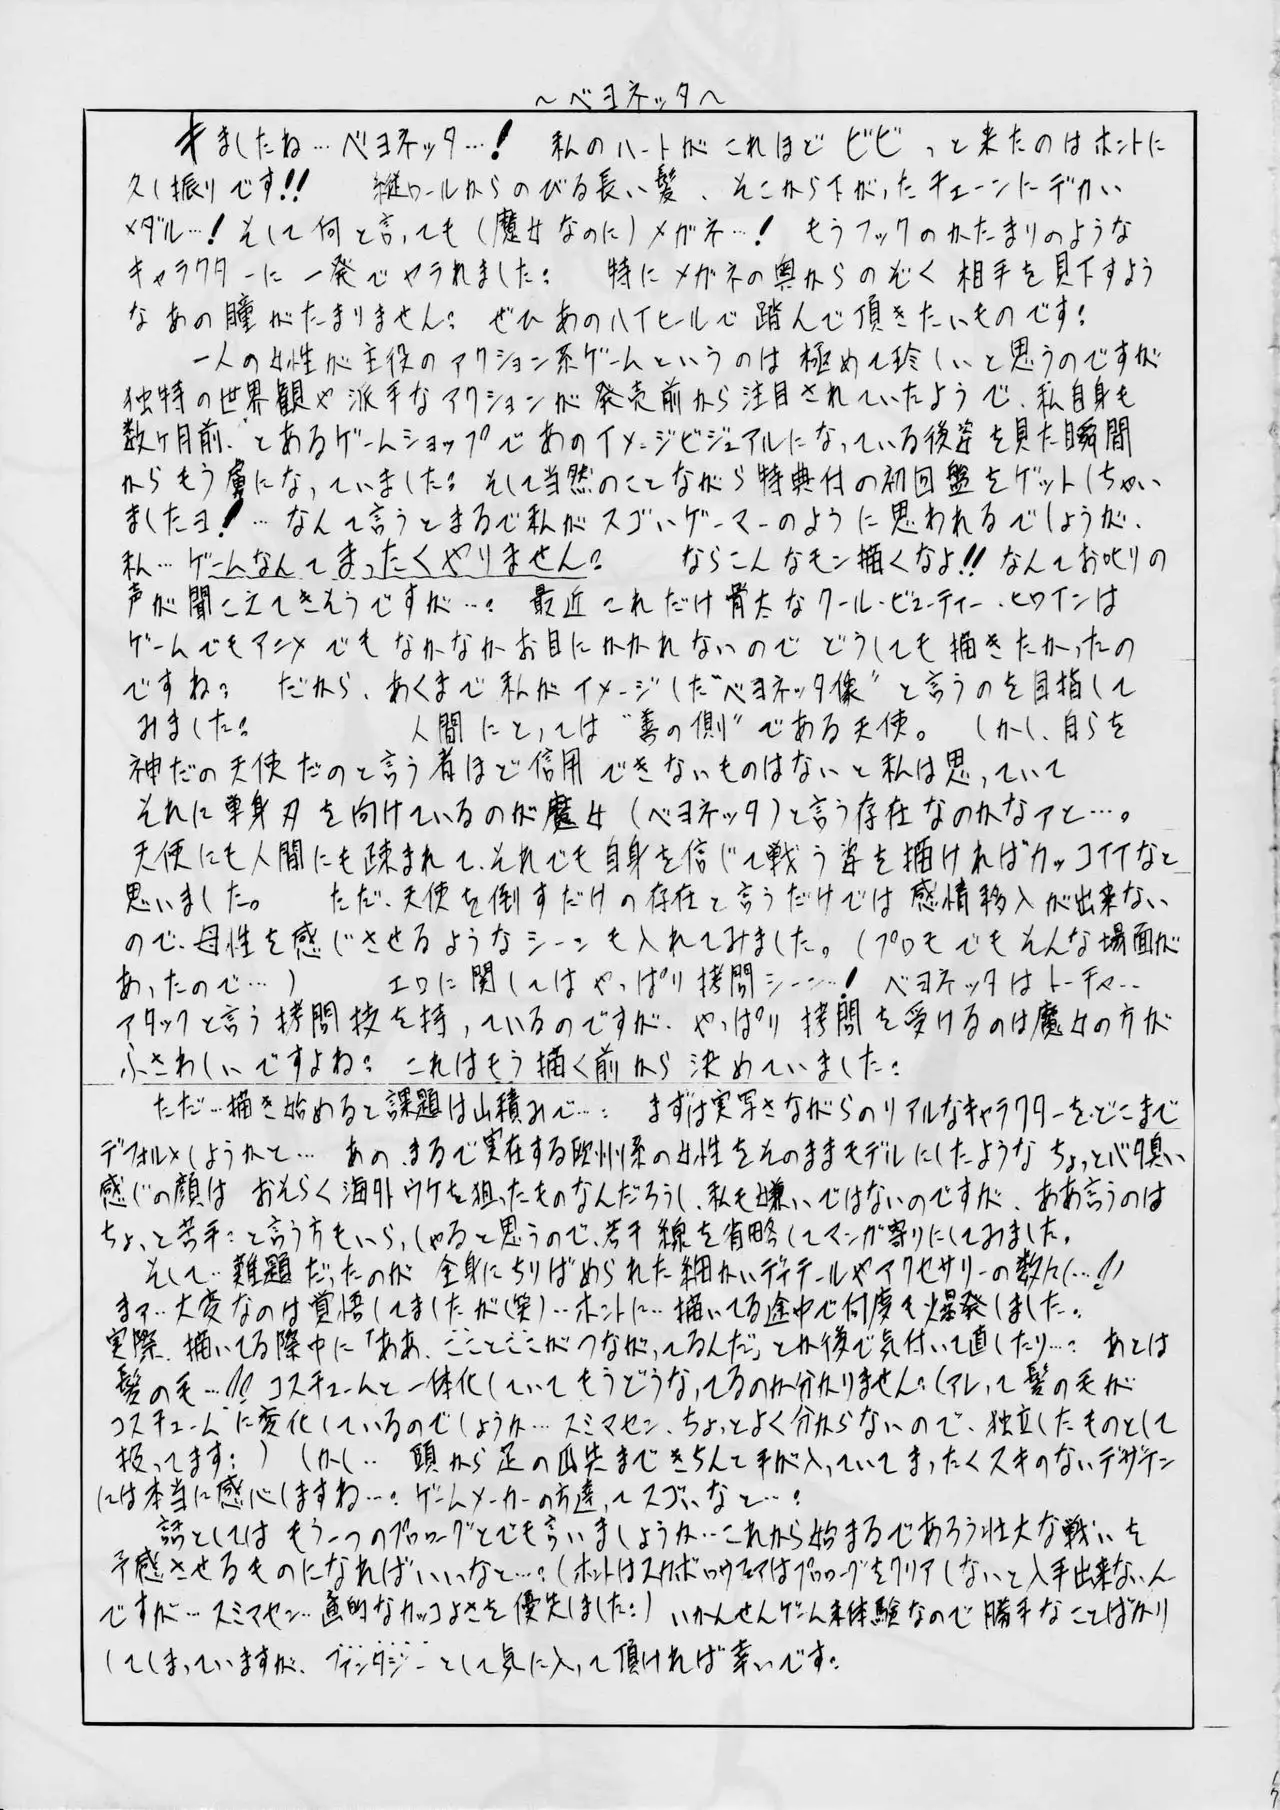 ～ベヨネッタ～
キましたね…ベヨネッタ…! 私のハートがこれほどビビっと来たのはホントに
久し振りです!! 縦ロールからのびる長い髪、そこから下がったチェーンにデカい
メダル…! そして何と言っても(魔女なのに)メガネ…! もうフックのかたまりのような
キャラクターに一発でヤラれました: 特にメガネの奥からのぞく相手を見下すよう
なあの瞳がたまりません: ぜひあのハイヒールで踏んで頂きたいものです:
一人の女性が主役のアクション系ゲームというのは極めて珍しいと思うのですが
独特の世界観や派手なアクションが発売前から注目されていたようで、私自身も
数ヶ月前、とあるゲームショップであのイメージビジュアルになっている後姿を見た瞬間
からもう虜になっていました: そして当然のことながら特典付の初回盤をゲットしちゃい
ましたヨ!…なんて言うとまるで私がスゴいゲーマーのように思われるでしょうが、
私…ゲームなんてまったくやりません: ならこんなモン描くなよ!! なんてお叱りの
声が聞こえてきそうですが…: 最近これだけ骨太なクール・ビューティー・ヒロインは
ゲームでもアニメでもなかなかお目にかかれないのでどうしても描きたかったの
ですね: だから、あくまで私がイメージした“ベヨネッタ像”と言うのを目指して
みました: 人間にとっては“善の側”である天使。 しかし、自らを
神だの天使だのと言う者ほど信用できないものはないと私は思っていて
それに単身刃を向けているのが魔女(ベヨネッタ)と言う存在なのかなァと…。
天使にも人間にも疎まれて、それでも自身を信じて戦う姿を描ければカッコイイなと
思いました。 ただ、天使を倒すだけの存在と言うだけでは感情移入が出来ない
ので、母性を感じさせるようなシーンも入れてみました。(プロモでもそんな場面が
あったので…) エロに関してはやっぱり拷問シーン…! ベヨネッタはトーチャー
アタックと言う拷問技を持っているのですが、やっぱり拷問を受けるのは魔女の方が
ふさわしいですよね: これはもう描く前から決めていました:
ただ…描き始めると課題は山積みで…: まずは実写さながらのリアルなキャラクターを、どこまで
デフォルメしようかと… あの、まるで実在する欧州系の女性をそのままモデルにしたようなちょっとバタ臭い
感じの顔は おそらく海外ウケを狙ったものなんだろうし、私も嫌いではないのですが、ああ言うのは
ちょっと苦手:と言う方もいらっしゃると思うので、若干線を省略してマンガ寄りにしてみました。
そして…難題だったのが全身にちりばめられた細かいディテールやアクセサリーの数々…!!
まァ…大変なのは覚悟してましたが(笑)…ホントに…描いてる途中で何度も爆発しました:
実際、描いてる際中に「ああ、こことここがつながってるんだ」とか後で気付いて直したり…: あとは
髪の毛…!! コスチュームと一体化していてもうどうなってるのか分かりません:(アレって髪の毛が
コスチュームに変化しているのでしょうか…スミマセン、ちょっとよく分からないので、独立したものとして
扱ってます:) しかし… 頭から足の爪先まできちんと手が入っていてまったくスキのないデザイン
には本当に感心しますね…: ゲームメーカーの方達ってスゴいなと…:
話としてはもう一つのプロローグとでも言いましょうか…これから始まるであろう壮大な戦いを
予感させるものになればいいなと…:(ホントはスカボロウフェアはプロローグをクリアしないと入手出来ないん
ですが…スミマセン…画的なカッコよさを優先しました:) いかんせんゲーム未体験なので勝手なことばかり
してしまっていますが、ファンタジーとして気に入って頂ければ幸いです: